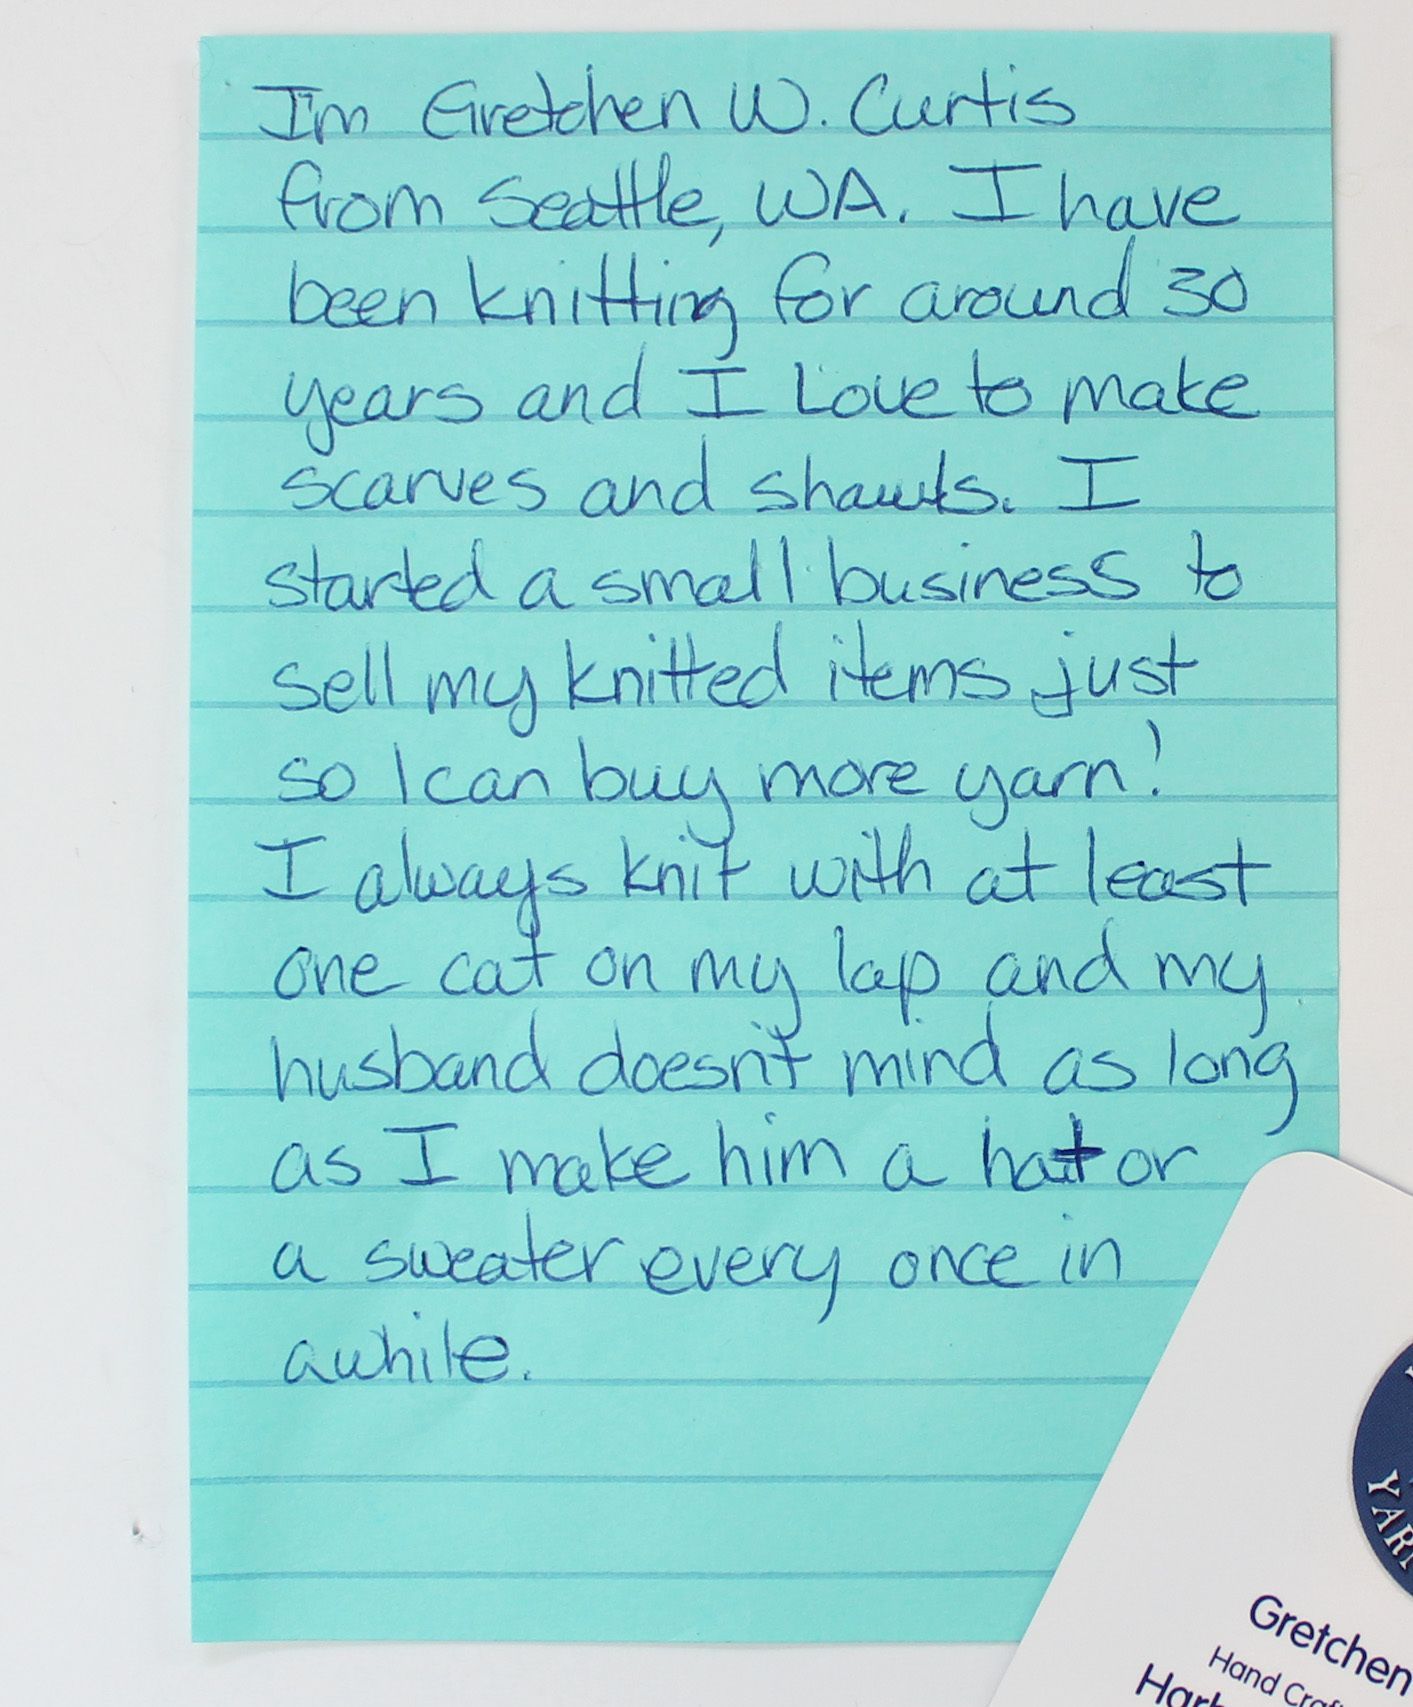 I'm Gretchen W. Curtis
from Seattle, WA. I have
been knitting for around 30
years and I Love to make
scarves and shawls. I
started a small business to
sell my knitted items just
so I can buy more yarn!
I always knit with at least
one cat on my lap and my
husband doesn't mind as long
as I make him a hat or
a sweater every once in
awhile.
Gretchen
Hand